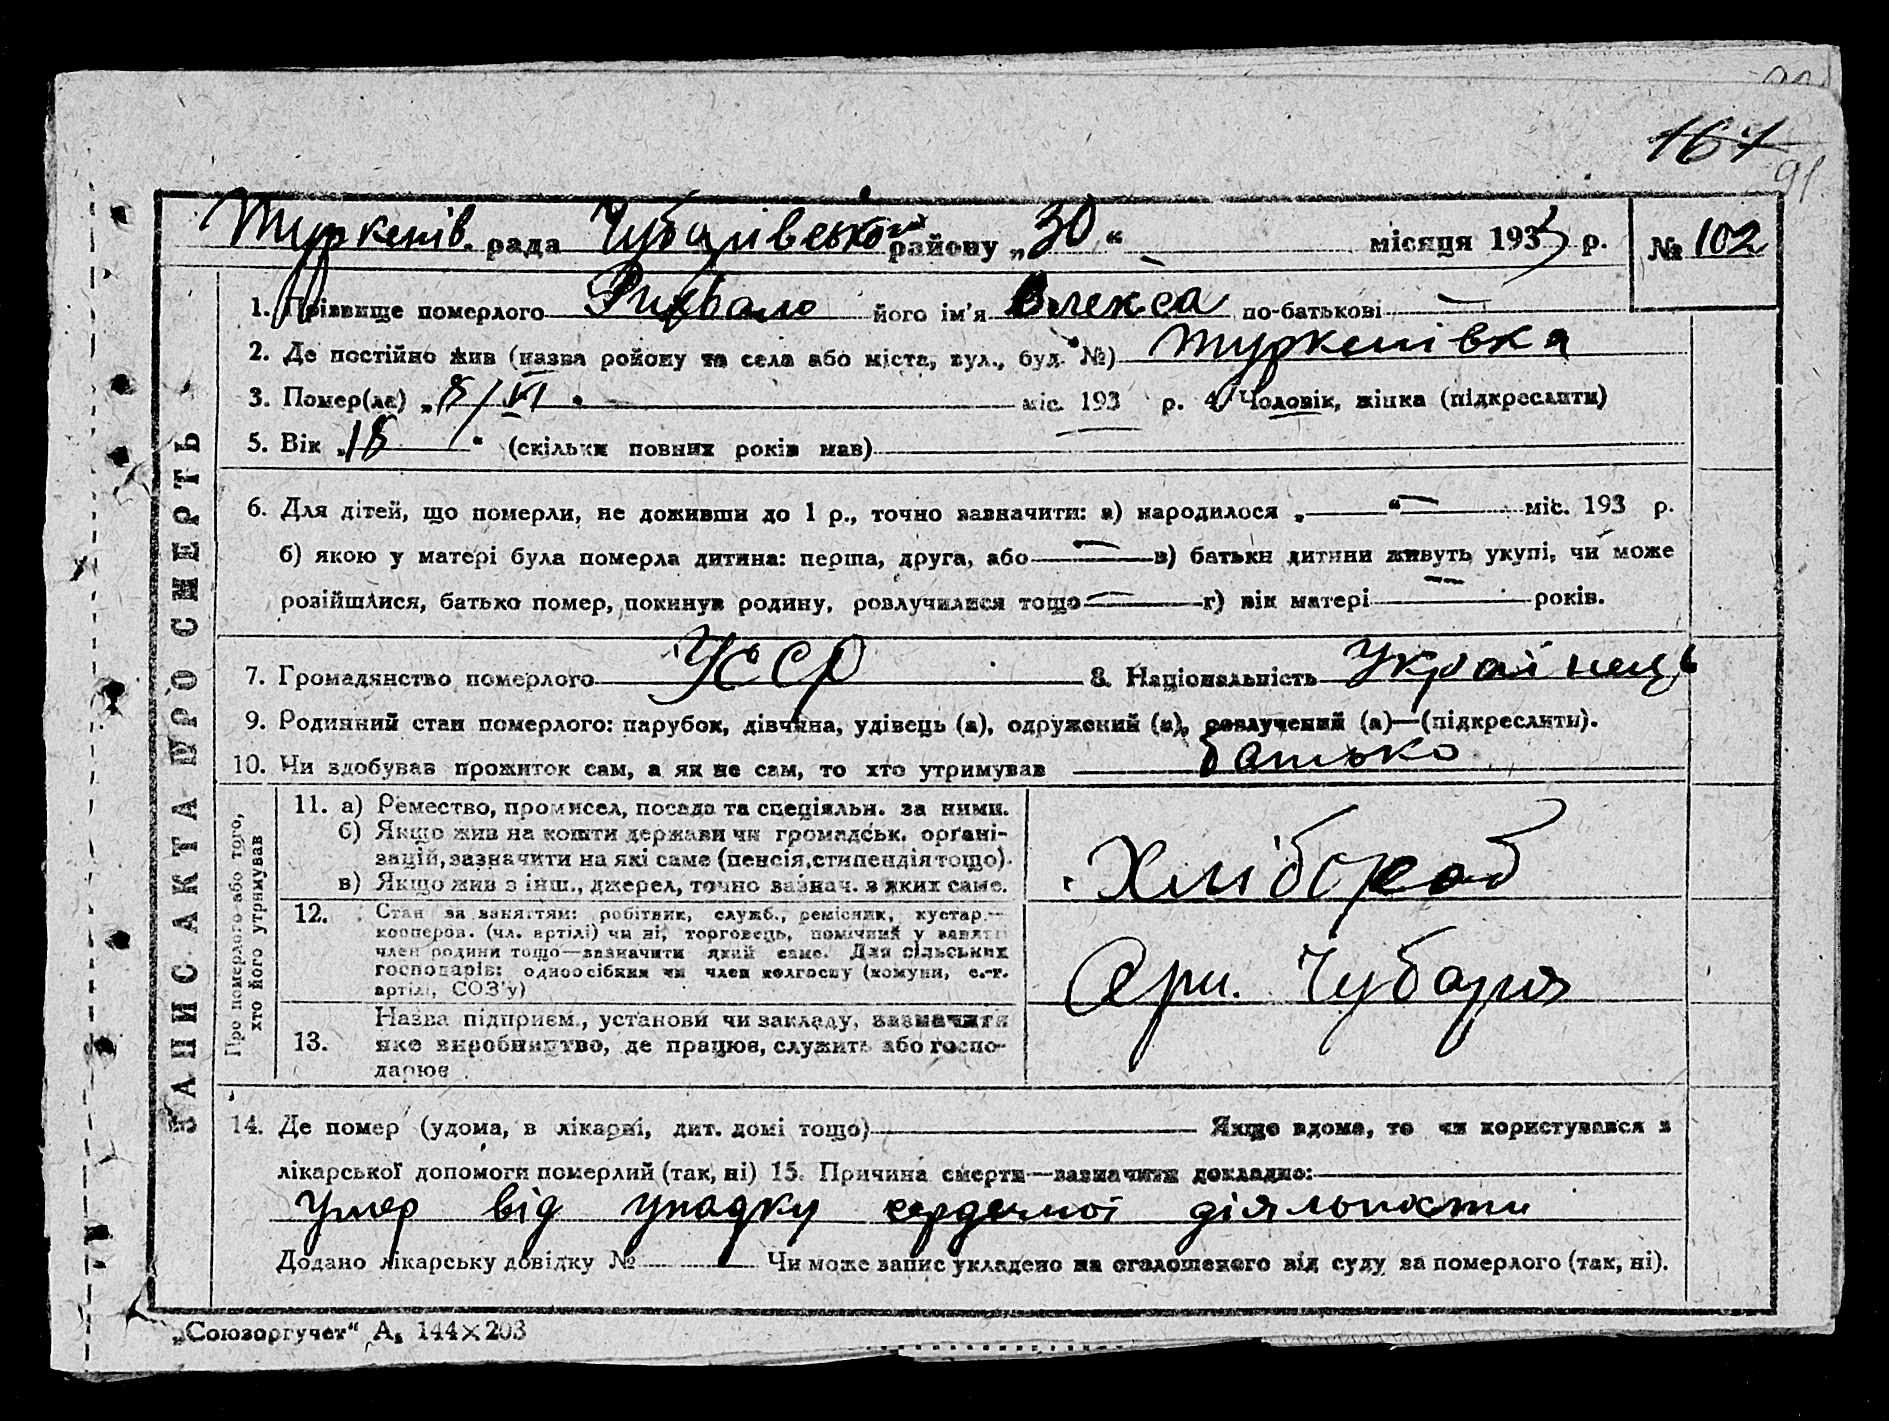 167
91
Туркенів. рада Чубарівського району „30“ місяця 1933 р. № 102
1. Прізвище померлого його ім'я Олекса по-батькові —
2. Де постійно жив (назва району та села або міста, вул., буд. №) Туркенівка
3. Помер(ла) „8/VI“ міс. 193 р. 4. Чоловік, жінка (підкреслити)
5. Вік „18“ (скільки повних років мав)
6. Для дітей, що померли, не доживши до 1 р., точно зазначити: а) народилося „—“ — міс. 193 р.
б) якою у матері була померла дитина: перша, друга, або — в) батьки дитини живуть укупі, чи може
розійшлися, батько помер, покинув родину, розлучилися тощо — г) вік матері — років.
7. Громадянство померлого УССР 8. Національність Українець
9. Родинний стан померлого: парубок, дівчина, удівець (а), одружений (а), розлучений (а)—(підкреслити).
10. Чи здобував прожиток сам, а як не сам, то хто утримував батько
ЗАПИС АКТА ПРО СМЕРТЬ
Про померлого або того,
хто його утримував
11. а) Ремество, промисел, посада та спеціяльн. за ними.
б) Якщо жив на кошти держави чи громадськ. орґані-
зацій, зазначити на які саме (пенсія, стипендія тощо).
в) Якщо жив з інш., джерел, точно зазнач. з яких саме.
Хлібороб
12. Стан за заняттям: робітник, служб., ремісник, кустар.—
кооперов. (чл. артілі) чи ні, торговець, помічний у занятті
член родини тощо—зазначити який саме. Для сільських
господарів: одноосібник чи член колгоспу (комуни, с.-г.
артілі, СОЗ'у)
Арт. Чубаря
13. Назва підприєм., установи чи закладу, зазначити
яке виробництво, де працює, служить або госпо-
дарює
14. Де помер (удома, в лікарні, дит. домі тощо) Якщо вдома, то чи користувався з
лікарської допомоги померлий (так, ні) 15. Причина смерти—зазначити докладно:
Умер від упадку сердечної діяльности
Додано лікарську довідку № Чи може запис укладено на оголошеного від суду за померлого (так, ні).
„Союзоргучет“ А₅ 144×203